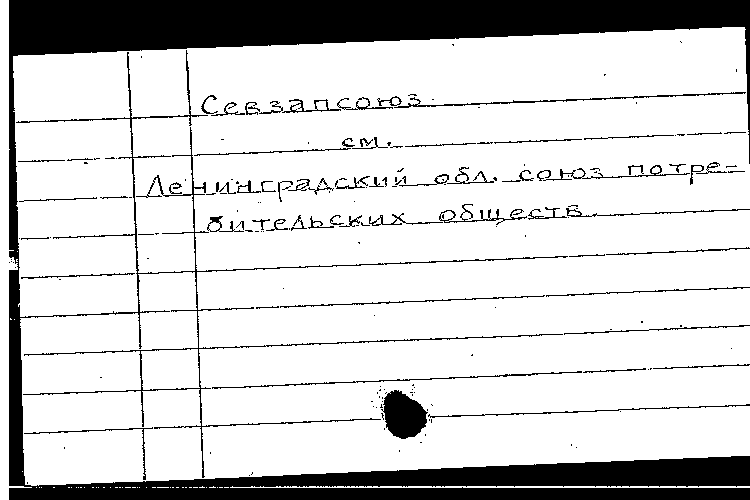 Севзапсоюз.
см.
Ленинградский обл. союз потре-
бительских обществ.